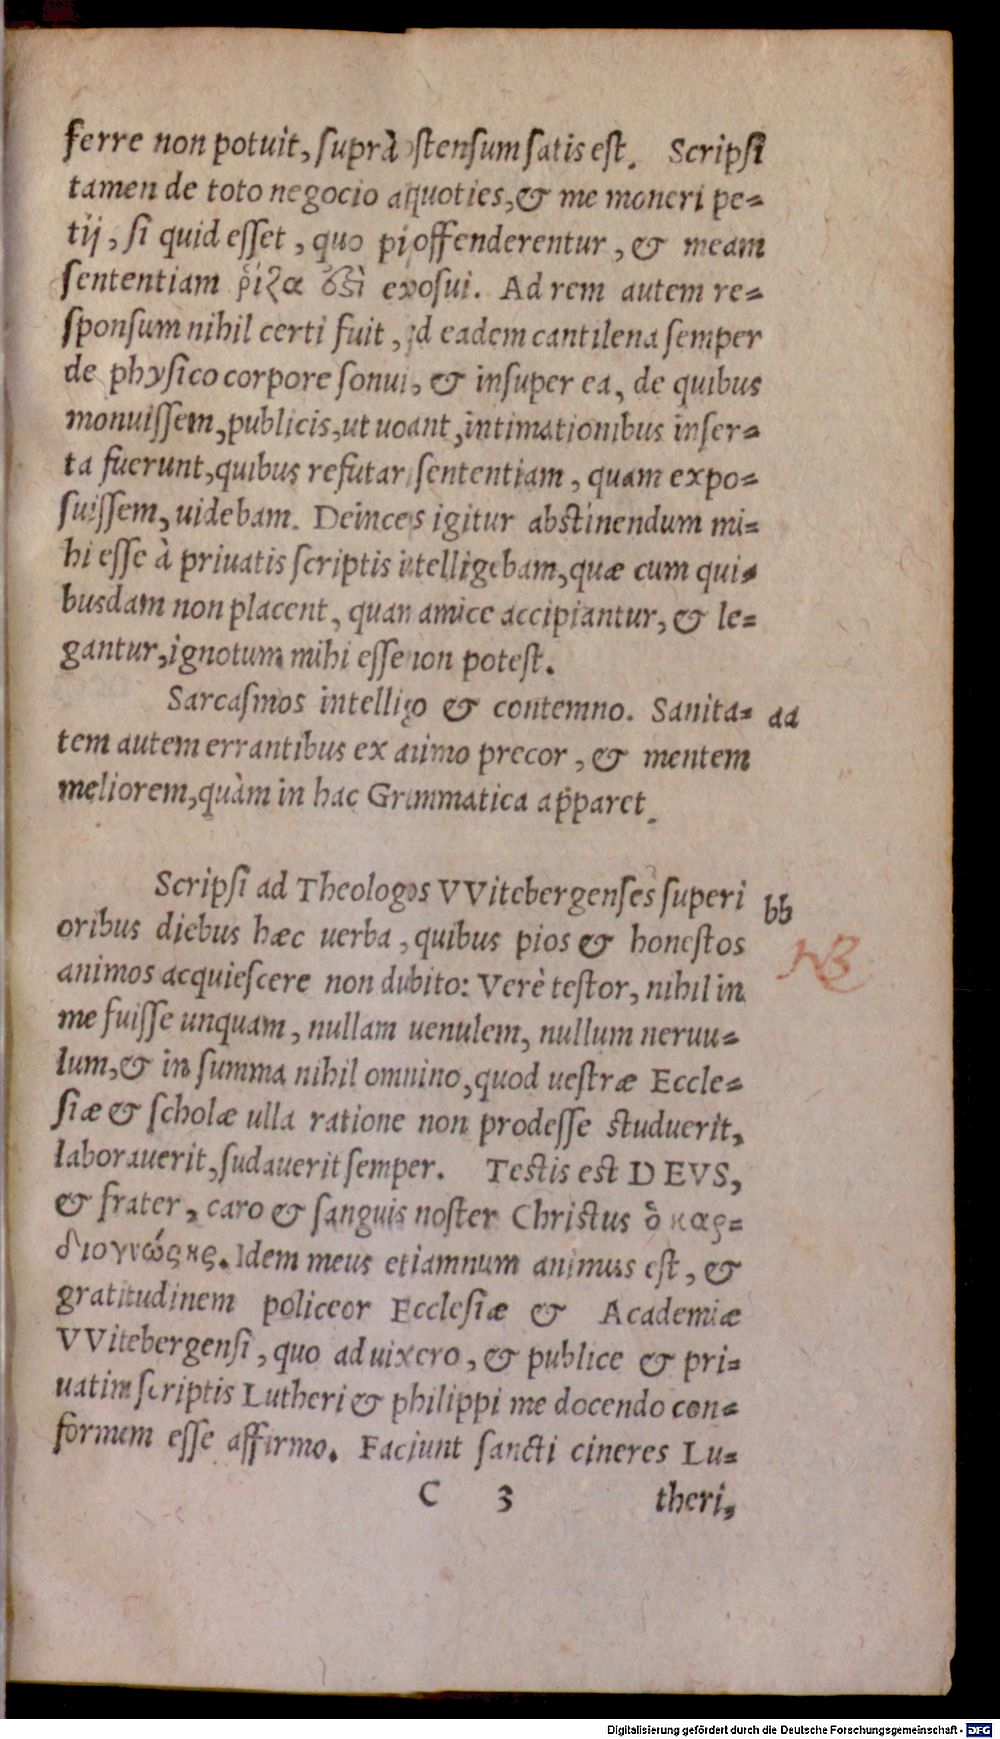 ferre non potuit, suprà ostensum satis est. Scripsi
tamen de toto negocio aliquoties, & me moneri pe-
tij, si quid esset, quo pij offenderentur, & meam
sententiam
exposui. Ad rem autem re-
sponsum nihil certi fuit, sed eadem cantilena semper
de physico corpore sonuit, & insuper ea, de quibus
monuissem, publicis, ut uocant, intimationibus inser-
ta fuerunt, quibus refutari sententiam, quam expo-
suissem, uidebam. Deinceps igitur abstinendum mi-
hi esse à priuatis scriptis intelligebam, quæ cum qui-
busdam non placent, quam amice accipiantur, & le-
gantur, ignotum mihi esse non potest.
Sarcasmos intelligo & contemno. Sanita- aa
tem autem errantibus ex animo precor, & mentem
meliorem, quàm in hac Grammatica apparet.
Scripsi ad Theologos VVitebergenses superi bb
oribus diebus hæc uerba, quibus pios & honestos
NB
animos acquiescere non dubito: Verè testor, nihil in
me fuisse unquam, nullam uenulem, nullum neruu-
lum, & in summa nihil omnino, quod uestræ Eccle-
siæ & scholæ ulla ratione non prodesse studuerit,
laborauerit, sudauerit semper. Testis est DEVS,
& frater, caro & sanguis noster Christus ὁ καρ-
διογνώςης. Idem meus etiamnum animus est, &
gratitudinem policeor Ecclesiæ & Academiæ
VVitebergensi, quo aduixero, & publice & pri-
uatim scriptis Lutheri & philippi me docendo con-
formem esse affirmo. Faciunt sancti cineres Lu-
C 3 theri,
Digitalisierung gefördert durch die Deutsche Forschungsgemeinschaft - DFG